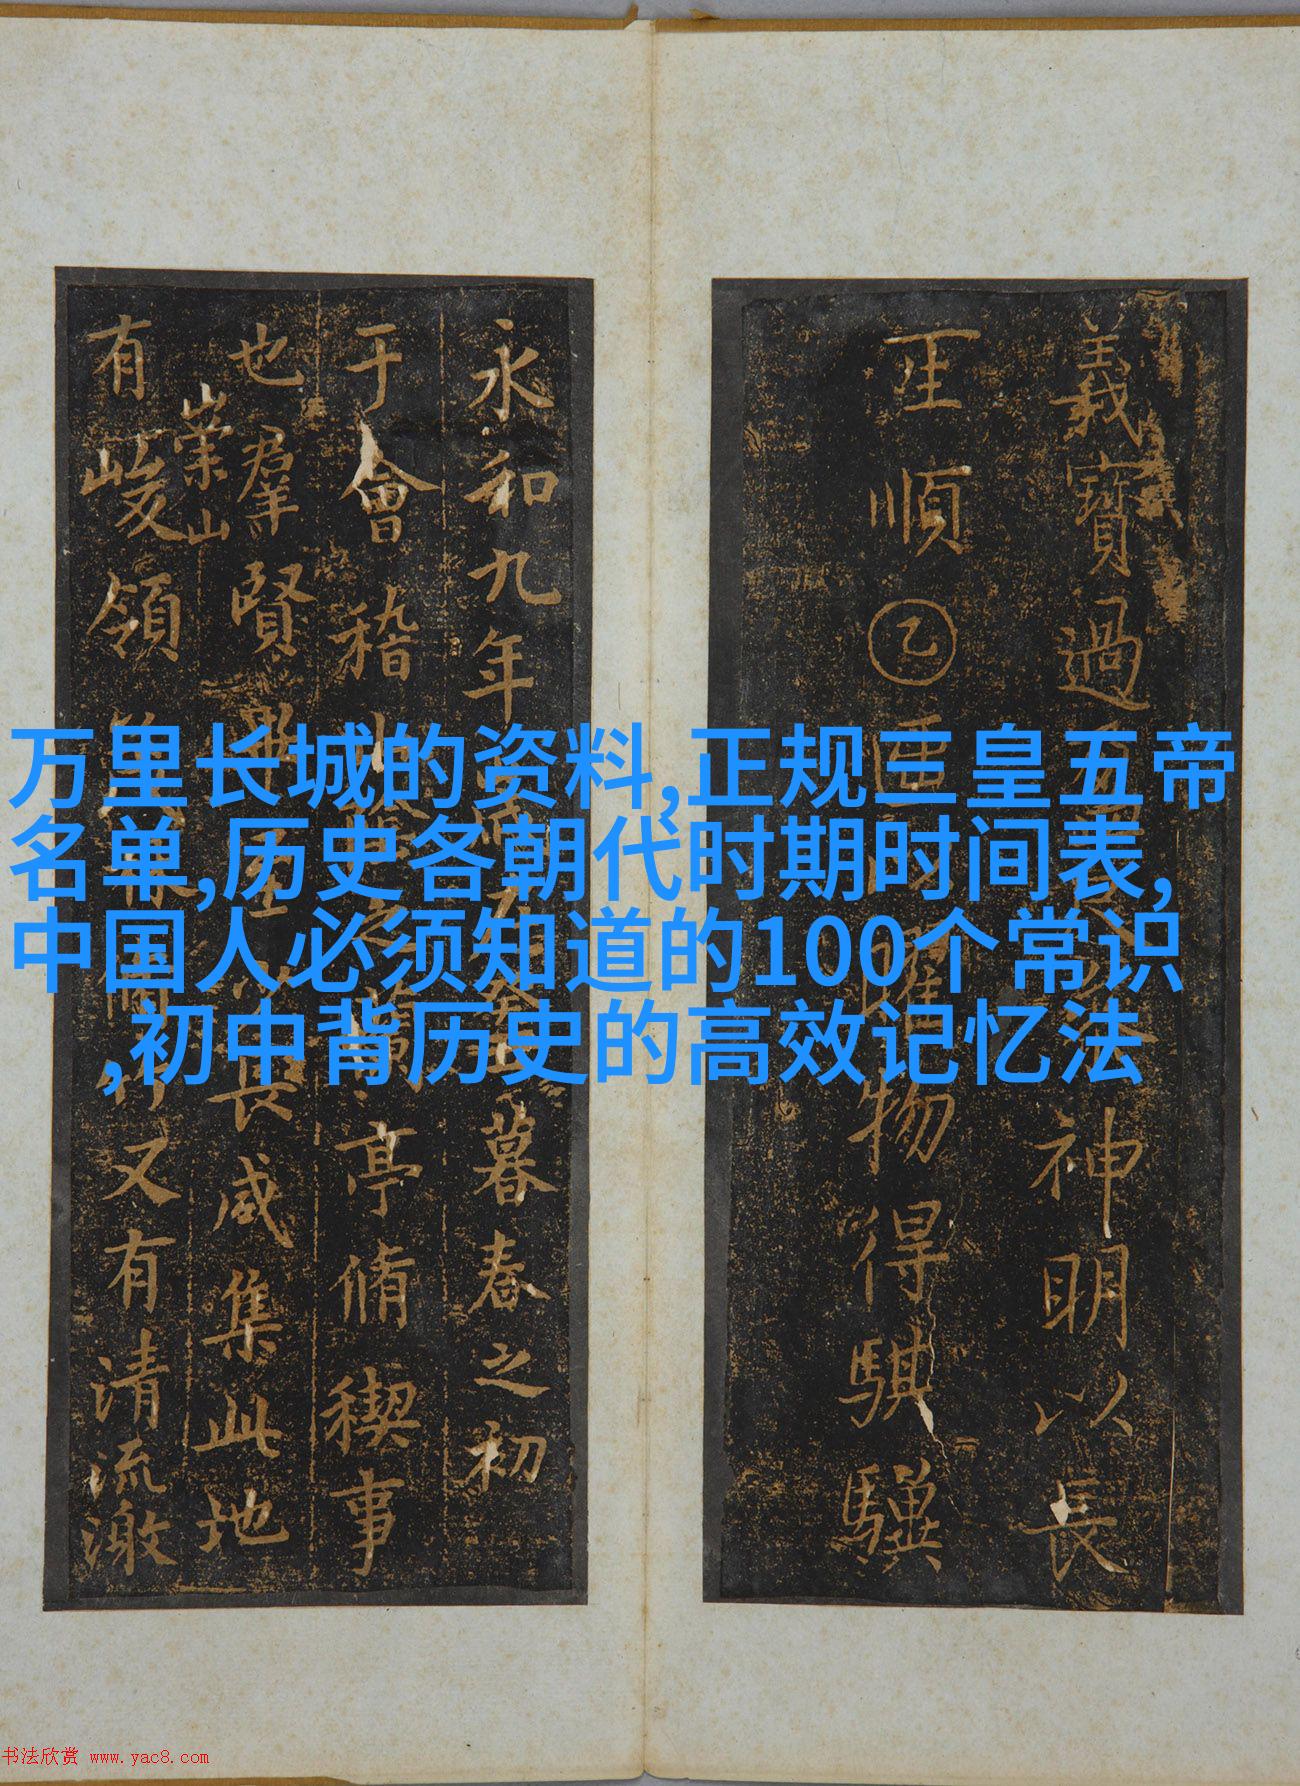 万里长城的资料,正规三皇五帝
名单,历史各朝代时期时间表,
中国人必须知道的100个常识
,初中背历史的高效记忆法
義寶過神明以長
順乙物得騏驥
永和九年暮春之初
于會稽亭脩禊事
也群賢長咸集此地
崇山
有峻領又有清流激
书法欣赏 www.yac8.com